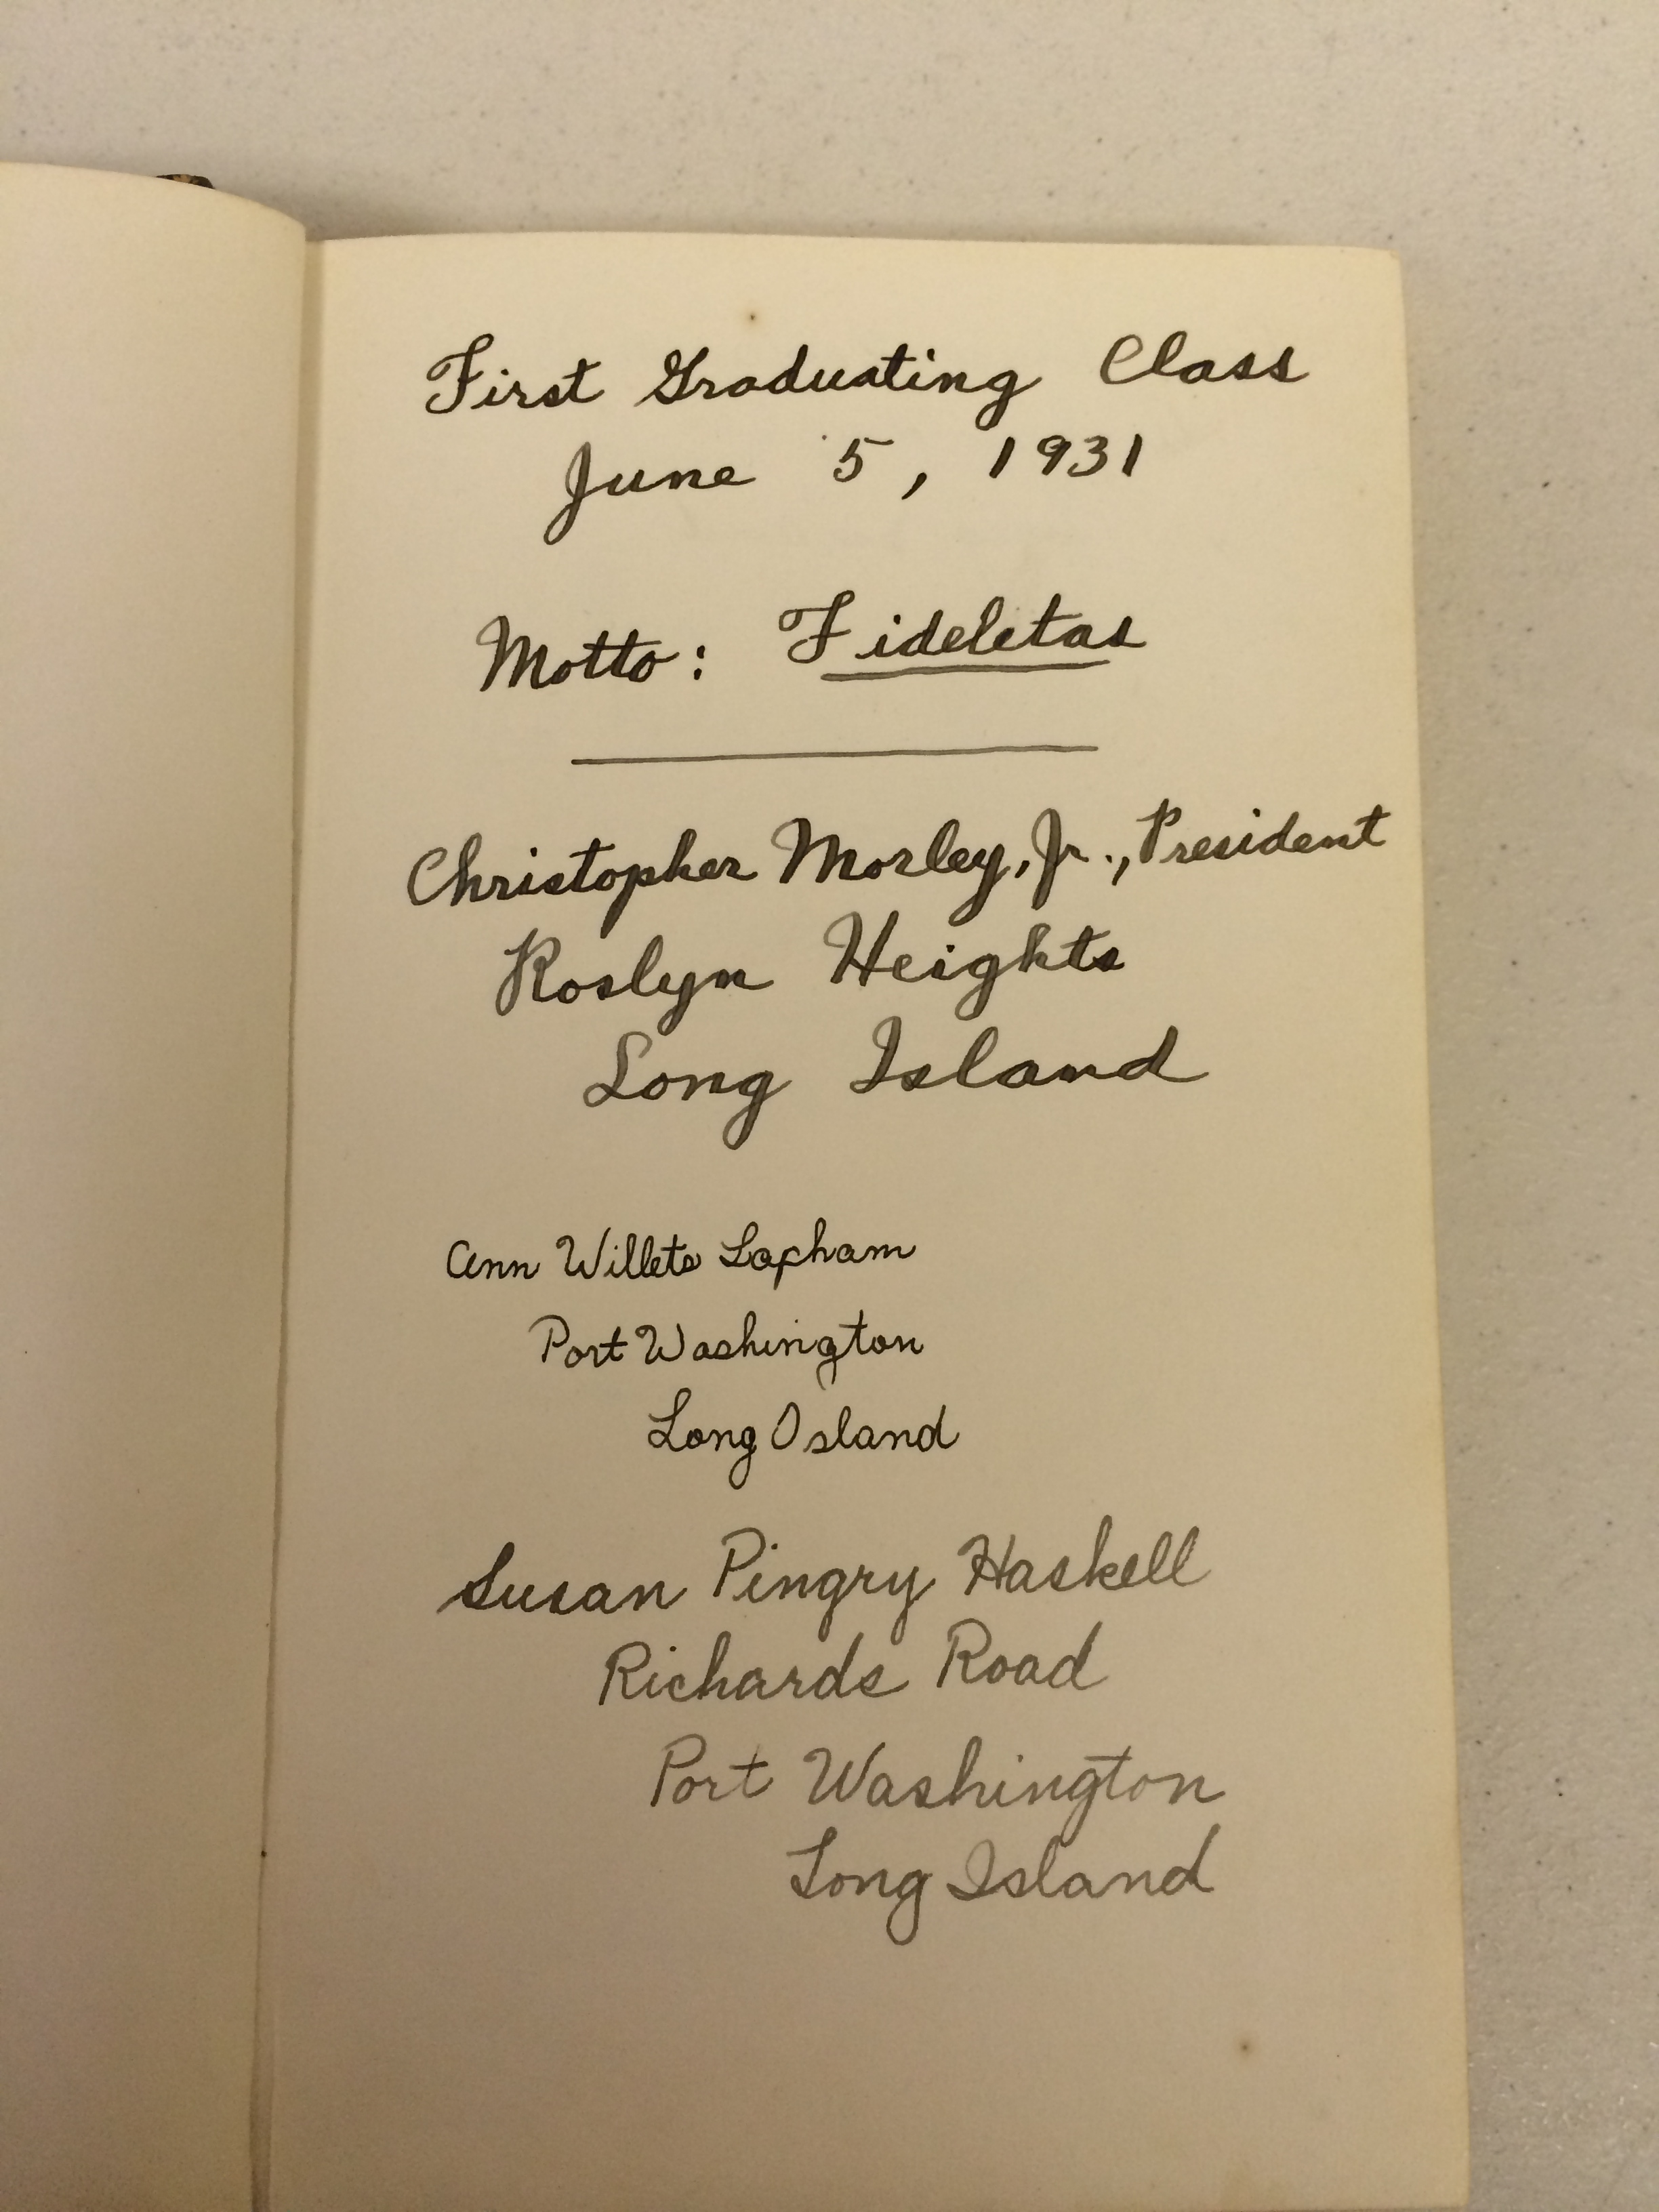 First Graduating Class
June 5, 1931
Motto: Fideletas
Christopher Morley, Jr., President
Roslyn Heights
Long Island
Ann Willets Lapham
Port Washington
Long Island
Susan Pingry Haskell
Richards Road
Port Washington
Long Island